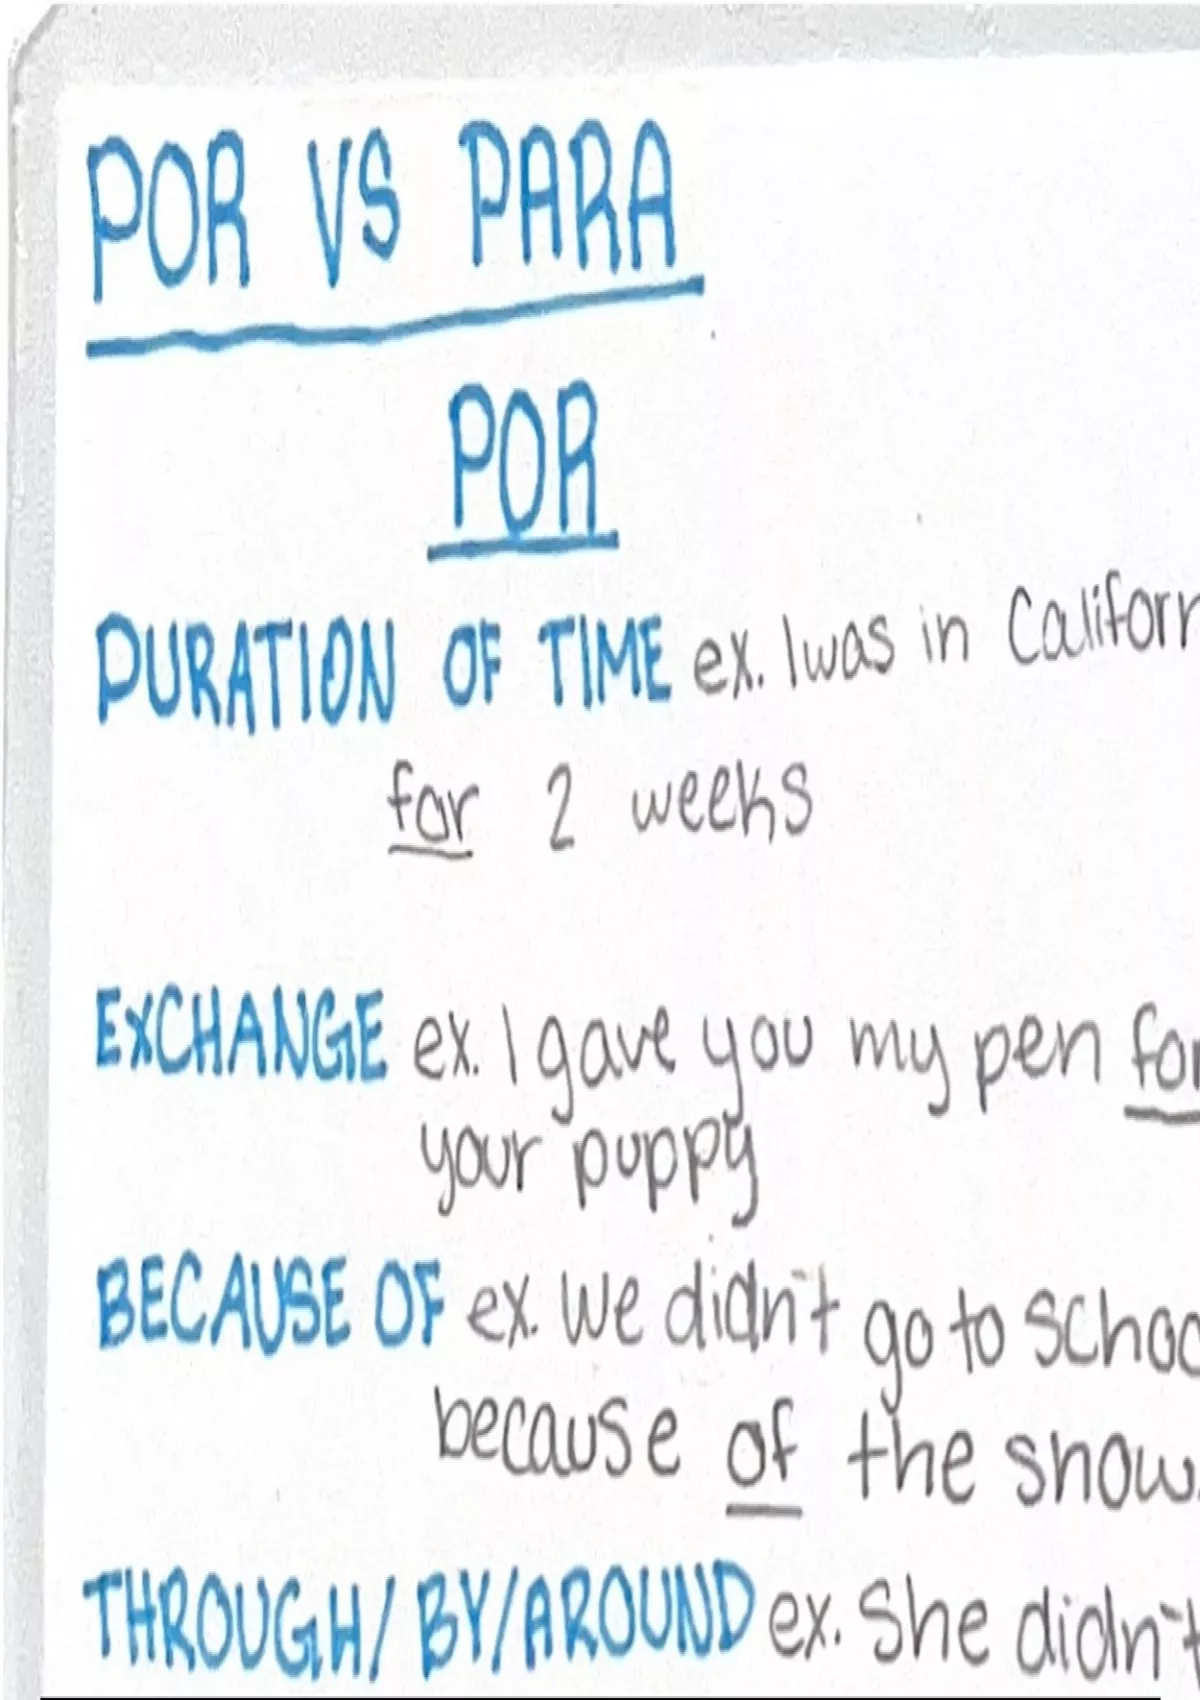 POR VS PARA
POR
DURATION OF TIME ex. I was in Californ
for 2 weeks
EXCHANGE ex. I gave you my pen for
your puppy
BECAUSE OF ex. We didn't go to schoo
because of the snow.
THROUGH/BY/AROUND ex. She didn't